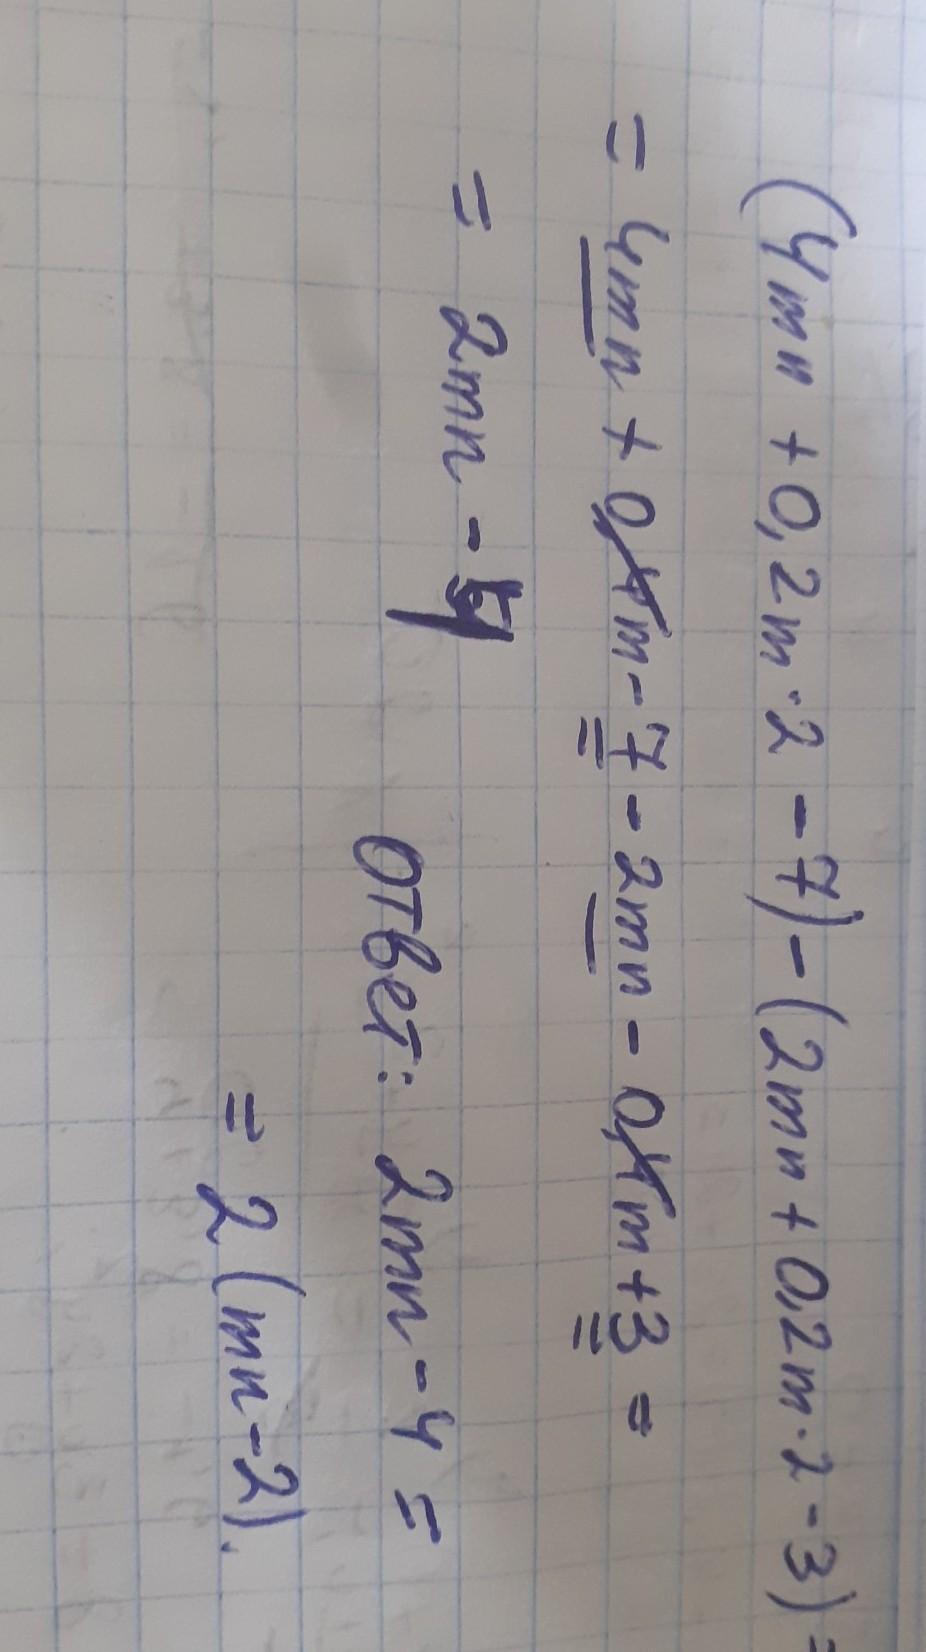 (4mn + 0,2m·2 - 7) - (2mn + 0,2m·2 - 3) =
= 4mn + 0,4m - 7 - 2mn - 0,4m + 3 =
= 2mn - 4
Ответ: 2mn - 4 =
= 2(mn - 2).